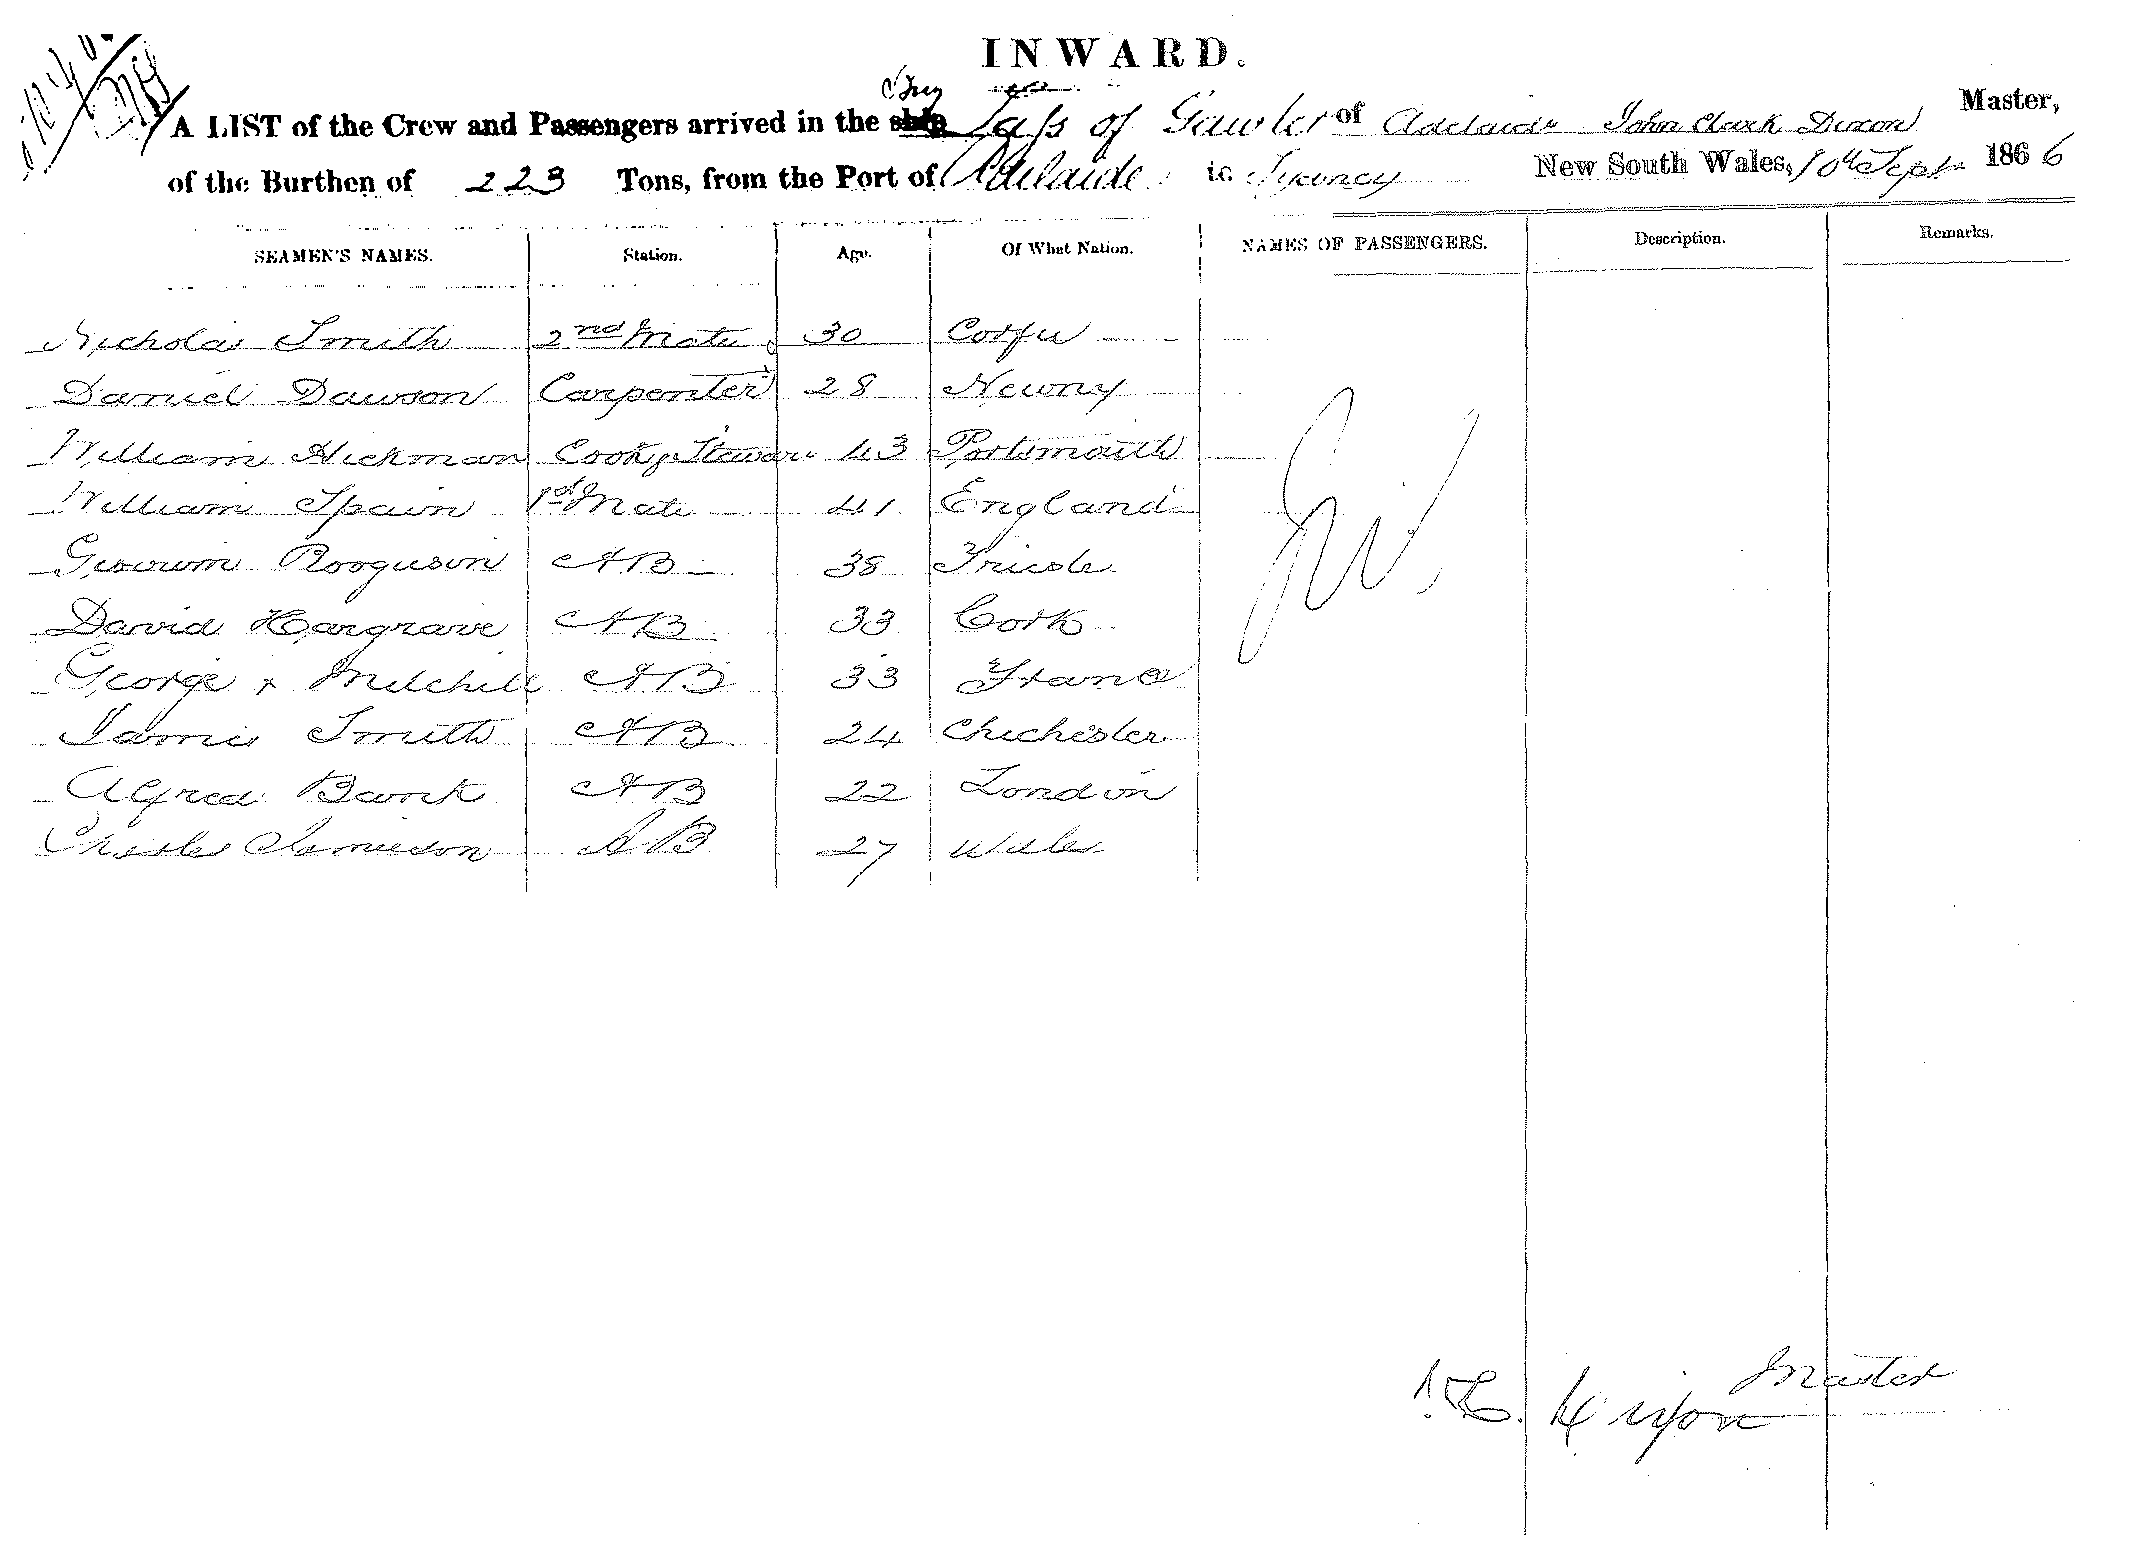 INWARD.
A LIST of the Crew and Passengers arrived in the ship Lass of Gawler of Adelaide John Clark Dixon Master,
of the Burthen of 223 Tons, from the Port of Adelaide to Sydney New South Wales, 10th Sept 1866
SEAMEN'S NAMES. Station. Age. Of What Nation. NAMES OF PASSENGERS. Description. Remarks.
Nicholas Smith 2nd Mate 30 Corfu
Daniel Dawson Carpenter 28 Newry
William Hickman Cook & Steward 43 Portsmouth
William Spain 1st Mate 41 England
38
David Hargrave AB 33 Cork
George Mitchell AB 33 France
James Smith AB 24 Chichester
Alfred AB 22 London
Charles Jamieson AB 27 Wales
Nil
J. C. Dixon Master